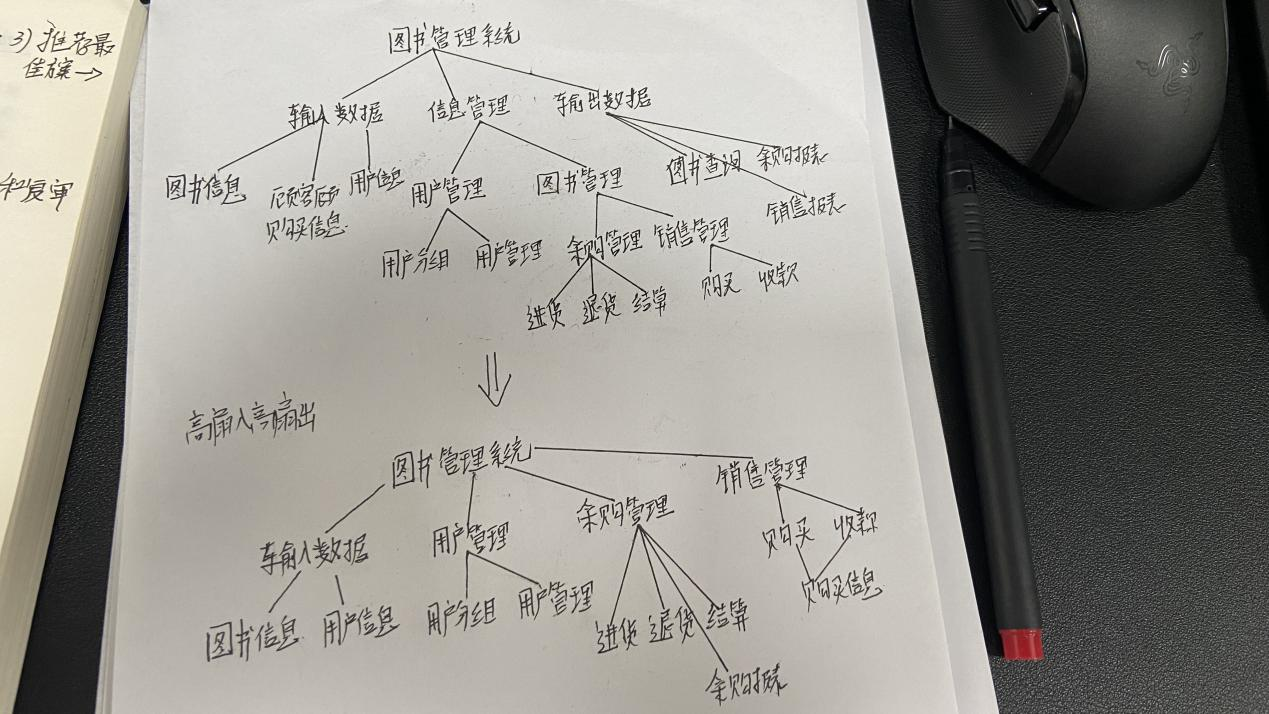 3) 推荐最
佳方案→
和复审
图书管理系统
输入数据 信息管理 输出数据
图书信息 顾客 购买信息 用户信息 用户管理 图书管理 图书查询 采购报表
销售报表
用户分组 用户管理 采购管理 销售管理
进货 退货 结算 购买 收款
高扇入高扇出
图书管理系统 销售管理
输入数据 用户管理 采购管理 购买 收款
图书信息 用户信息 用户分组 用户管理 进货 退货 结算 购买信息
采购报表